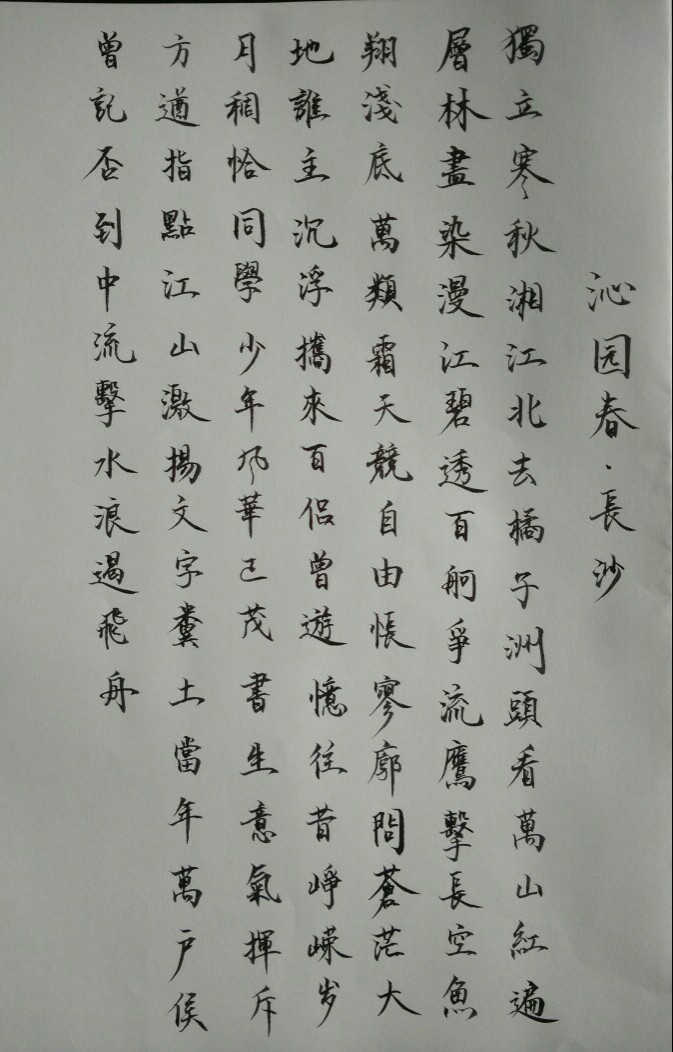 沁园春·長沙
獨立寒秋湘江北去橘子洲頭看萬山紅遍
層林盡染漫江碧透百舸爭流鷹擊長空魚
翔淺底萬類霜天競自由悵寥廓問蒼茫大
地誰主沉浮攜來百侣曾遊憶往昔崢嶸岁
月稠恰同學少年风華正茂書生意氣揮斥
方遒指點江山激揚文字糞土當年萬户侯
曾記否到中流擊水浪遏飛舟